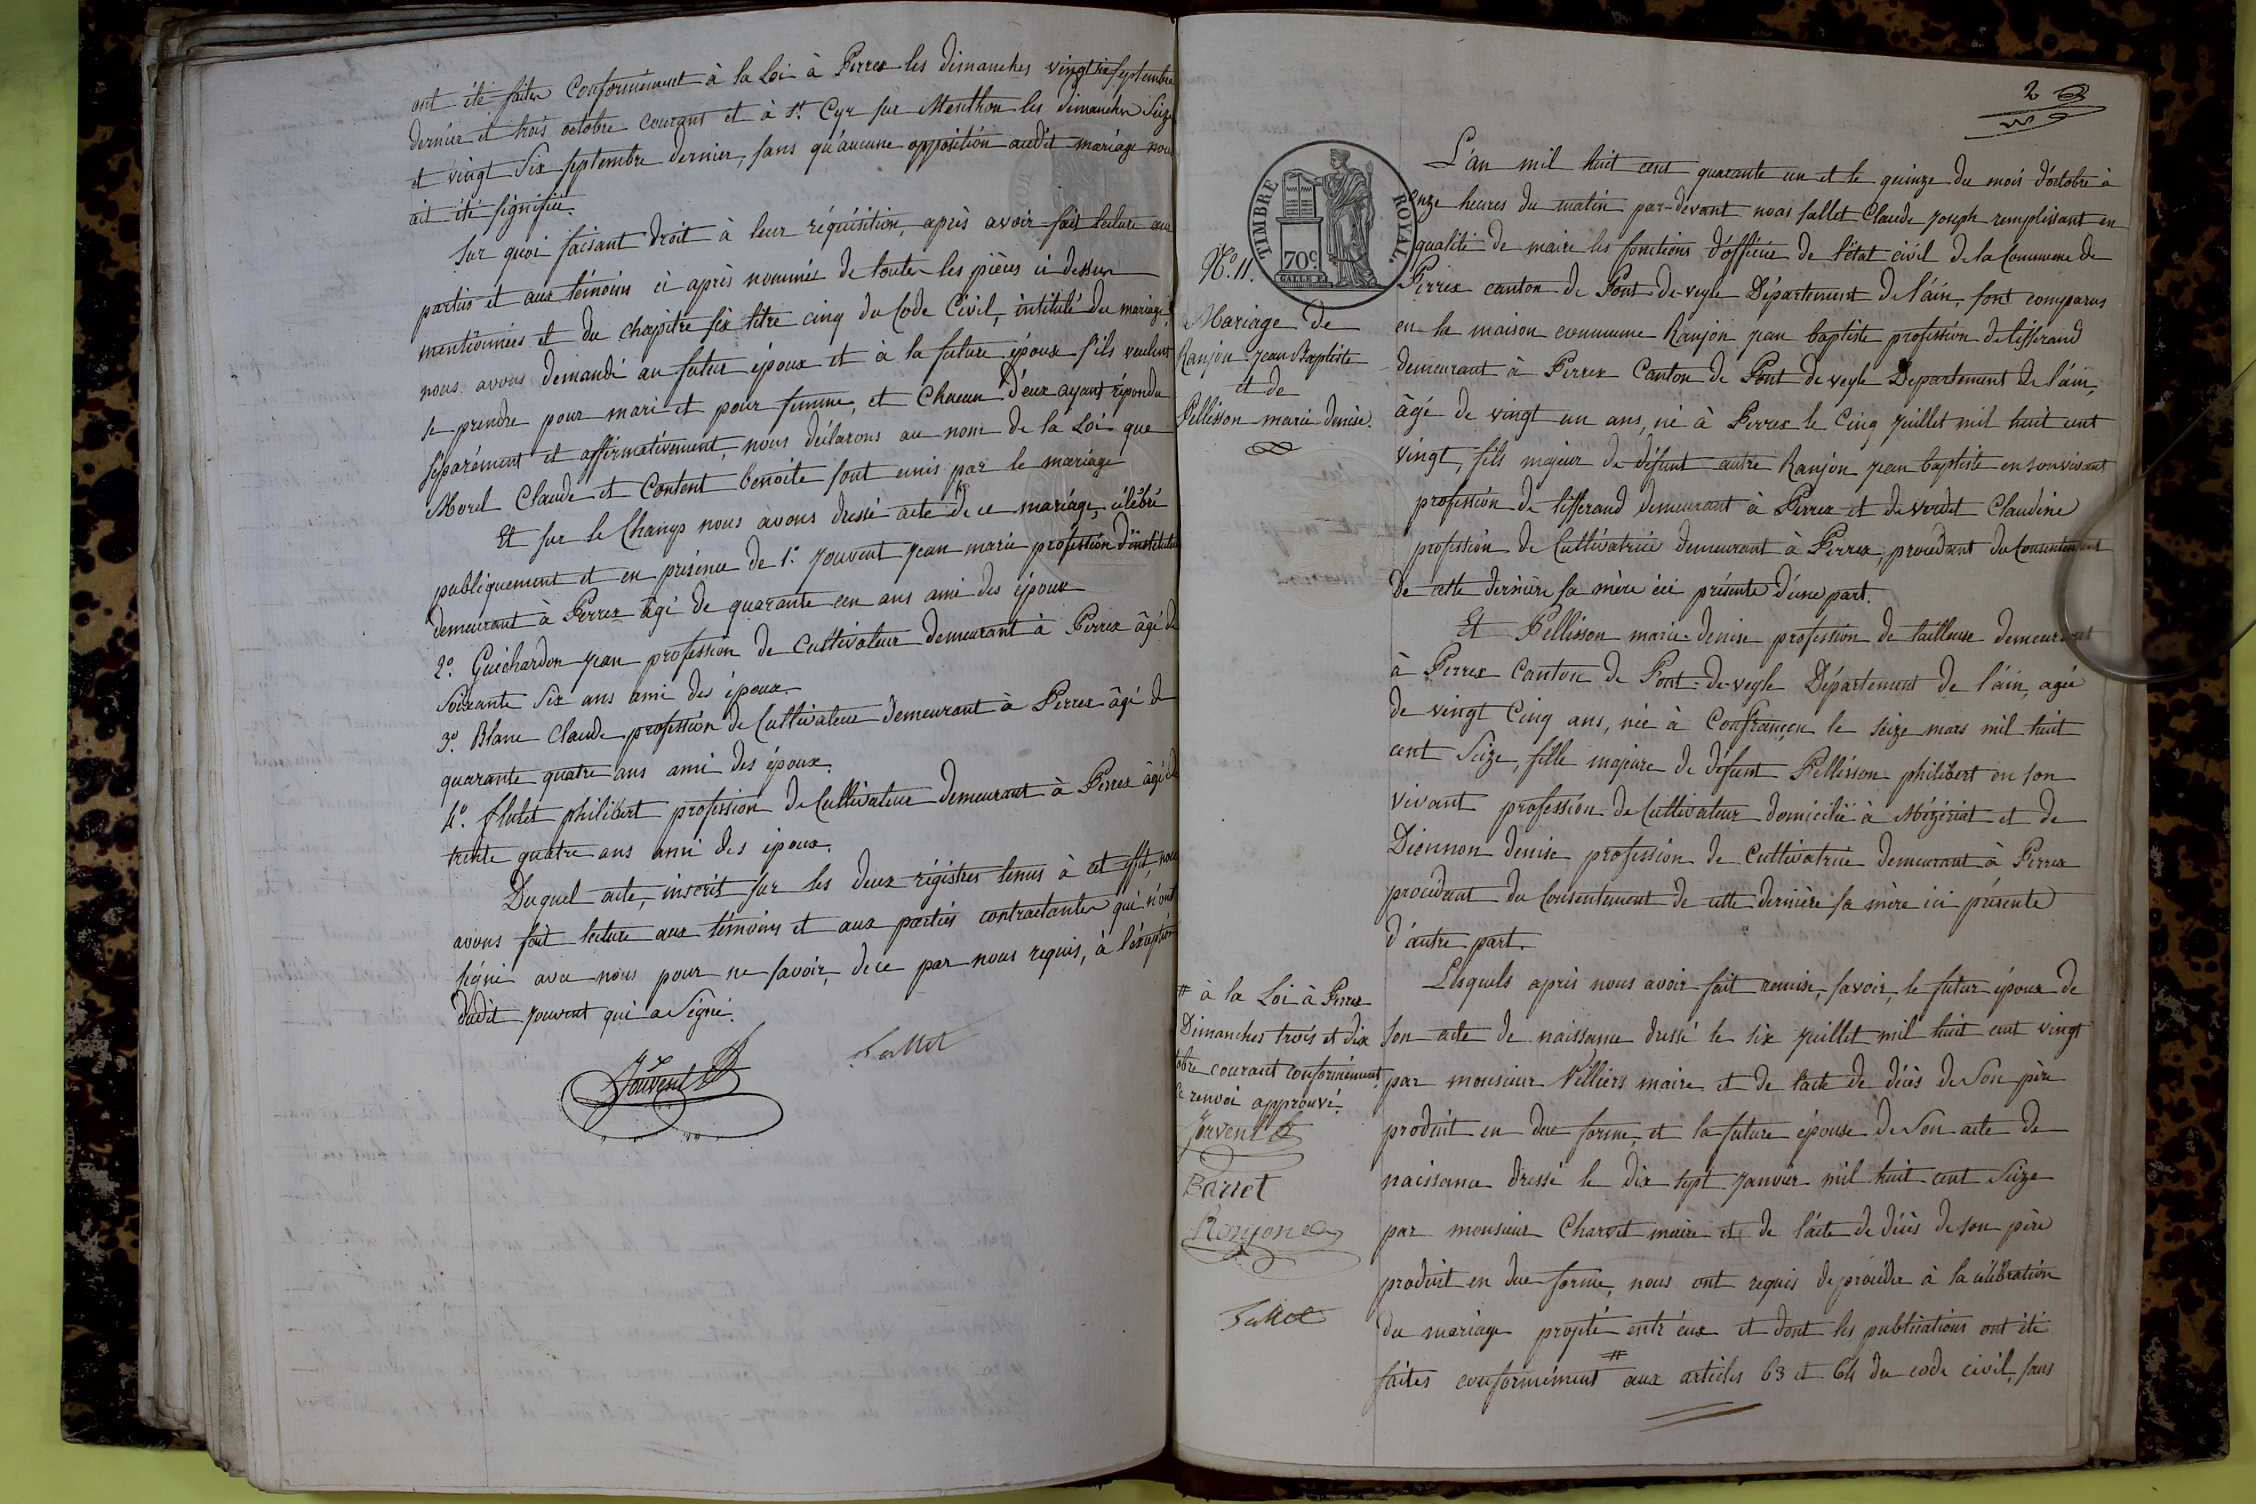 ont été faites Conformément à la Loi à Perrex les dimanches vingt six septembre
dernier et trois octobre courant et à St. Cyr sur Menthon les dimanches Seize
et vingt Six septembre dernier, sans qu'aucune opposition audit mariage nous
ait été signifiée.
Sur quoi faisant droit à leur réquisition, après avoir fait lecture aux
parties et aux témoins ci après nommés de toutes les pièces ci dessus
mentionnées et du chapitre six titre cinq du Code Civil, intitulé du mariage,
nous avons demandé au futur époux et à la future épouse s'ils veulent
se prendre pour mari et pour femme, et Chacun d'eux ayant répondu
séparément et affirmativement, nous déclarons au nom de la Loi que
Morel Claude et Content benoite sont unis par le mariage
Et sur le Champ nous avons dressé acte de ce mariage, célébré
publiquement et en présence de 1.° Jouvent Jean marie profession d'instituteur
demeurant à Perrex âgé de quarante un ans ami des époux
2.° Guichardon Jean profession de Cultivateur demeurant à Perrex âgé de
Soixante Six ans ami des époux.
3.° Blanc Claude profession de Cultivateur demeurant à Perrex âgé de
quarante quatre ans ami des époux.
4.° flutet philibert profession de Cultivateur demeurant à Perrex âgé de
trente quatre ans ami des époux.
Duquel acte, inscrit sur les deux régistres tenus à cet effet, nous
avons fait lecture aux témoins et aux parties contractantes qui n'ont
signé avec nous pour ne savoir, de ce par nous requis, à l'éxeption
dudit Jouvent qui a Signé.
Jouvent
fallet
2
TIMBRE ROYAL
70c
N.° 11.
Mariage de
Ranjon Jean Baptiste
et de
Pellisson marie denise.
L'an mil huit cent quarante un et le quinze du mois d'octobre à
onze heures du matin par-devant nous fallet Claude Joseph remplissant en
qualité de maire les fonctions d'officier de l'état civil de la Commune de
Perrex canton de Pont-de-veyle Département de l'ain, sont comparus
en la maison commune Ranjon Jean baptiste profession de tisserand
demeurant à Perrex Canton de Pont de veyle Departement de l'ain,
âgé de vingt un ans, né à Perrex le Cinq Juillet mil huit cent
vingt, fils majeur de défunt autre Ranjon Jean baptiste en son vivant
profession de tisserand demeurant à Perrex et de Verdet Claudine
profession de Cultivatrice demeurant à Perrex, procédant du Consentement
de cette dernière sa mère ici présente d'une part.
Et Pellisson marie-denise profession de tailleuse demeurant
à Perrex Canton de Pont-de-veyle Département de l'ain, agée
de vingt Cinq ans, née à Confrançon le Seize mars mil huit
cent Seize, fille majeure de défunt Pellisson philibert en son
vivant profession de Cultivateur domicilié à Mézériat et de
Diennon denise profession de Cultivatrice demeurant à Perrex
procédant du Consentement de cette dernière sa mère ici présente
d'autre part.
Lesquels après nous avoir fait remise, savoir, le futur époux de
son acte de naissance dressé le six Juillet mil huit cent vingt
par monsieur Villiers maire et de l'acte de décès de Son père
produit en due forme, et la future épouse de Son acte de
naissance dressé le dix sept Janvier mil huit cent Seize
par monsieur Charvet maire et de l'acte de décès de son père
produit en due forme, nous ont requis de procéder à la célébration
du mariage projeté entr'eux et dont les publications ont été
faites conformément # aux articles 63 et 64 du code civil, sans
# à la Loi à Perrex
Dimanches trois et dix
courant conformément
renvoi approuvé.
Jouvent
Barret
Ronjon
fallet